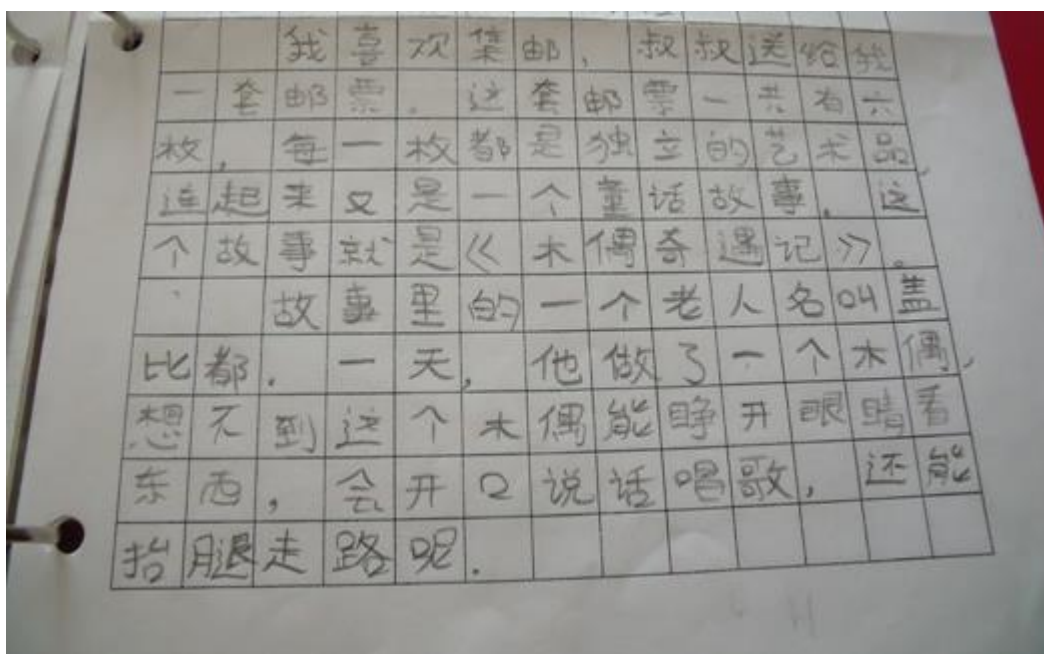 我喜欢集邮，叔叔送给我
一套邮票。这套邮票一共有六
枚，每一枚都是独立的艺术品，
连起来又是一个童话故事。这
个故事就是《木偶奇遇记》。
故事里的一个老人名叫盖
比都。一天，他做了一个木偶，
想不到这个木偶能睁开眼睛看
东西，会开口说话唱歌，还能
抬腿走路呢。